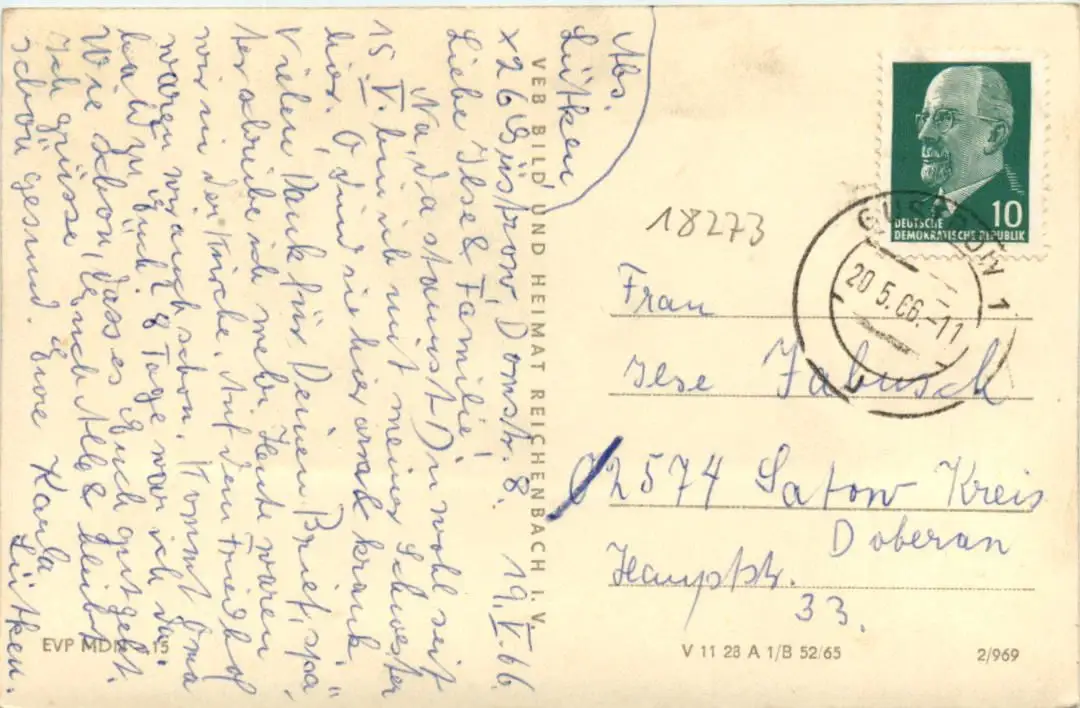 Abs.
Lütken
x 26 Güstrow, Domstr. 8. 19.V.66.
Liebe Ilse & Familie!
Na, da staunst Du wohl seit
15.V. bin ich mit meiner Schwester
hier. O sind sie hier arak krank.
Vielen Dank für Deinen Brief, spä
ter schreibe ich mehr. Heute waren
wir in der Kirche. Auf dem Friedhof
waren wir auch schon. Kommt Oma
bald zu Euch? 8 Tage war ich da.
Wie schon, dass es Euch gut geht.
Ich grüsse, Euch Alle & bleibt
schön gesund. Eure Karla
Lütken.
VEB BILD UND HEIMAT REICHENBACH I. V.
DEUTSCHE
DEMOKRATISCHE REPUBLIK
10
GÜSTROW 1
20.5.66.-11
18273
Frau
Ilse Jabusch
02574 Satow Kreis
Doberan
Hauptstr.
33.
EVP MDN 0,15
V 11 28 A 1/B 52/65
2/969